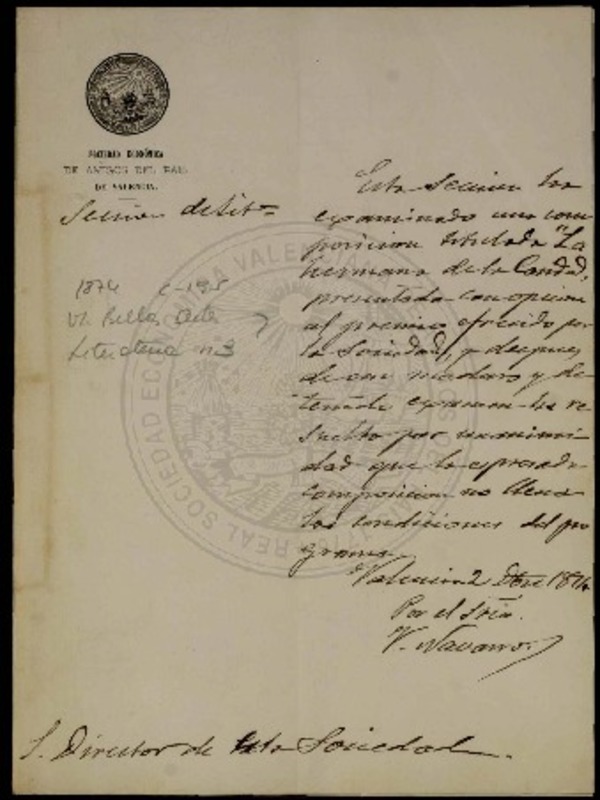 SOCIEDAD ECONÓMICA
DE AMIGOS DEL PAIS
DE VALENCIA.
Seccion de Lit.ª
1874 C-195
VI. Bellas Artes y
Literatura n.3
Esta Seccion ha
examinado una com
posicion titulada "La
hermana de la Caridad,
presentada con opcion
al premio ofrecido por
la Sociedad, y despues
de un maduro y de
tenido examen ha re
suelto por unanimi
dad que la espresada
composicion no llena
las condiciones del pro
grama.
Valencia 2 Dbre 1874
Por el Srio.
V. Navarro.
S. Director de esta Sociedad.
REAL SOCIEDAD ECONÓMICA VALENCIANA DE